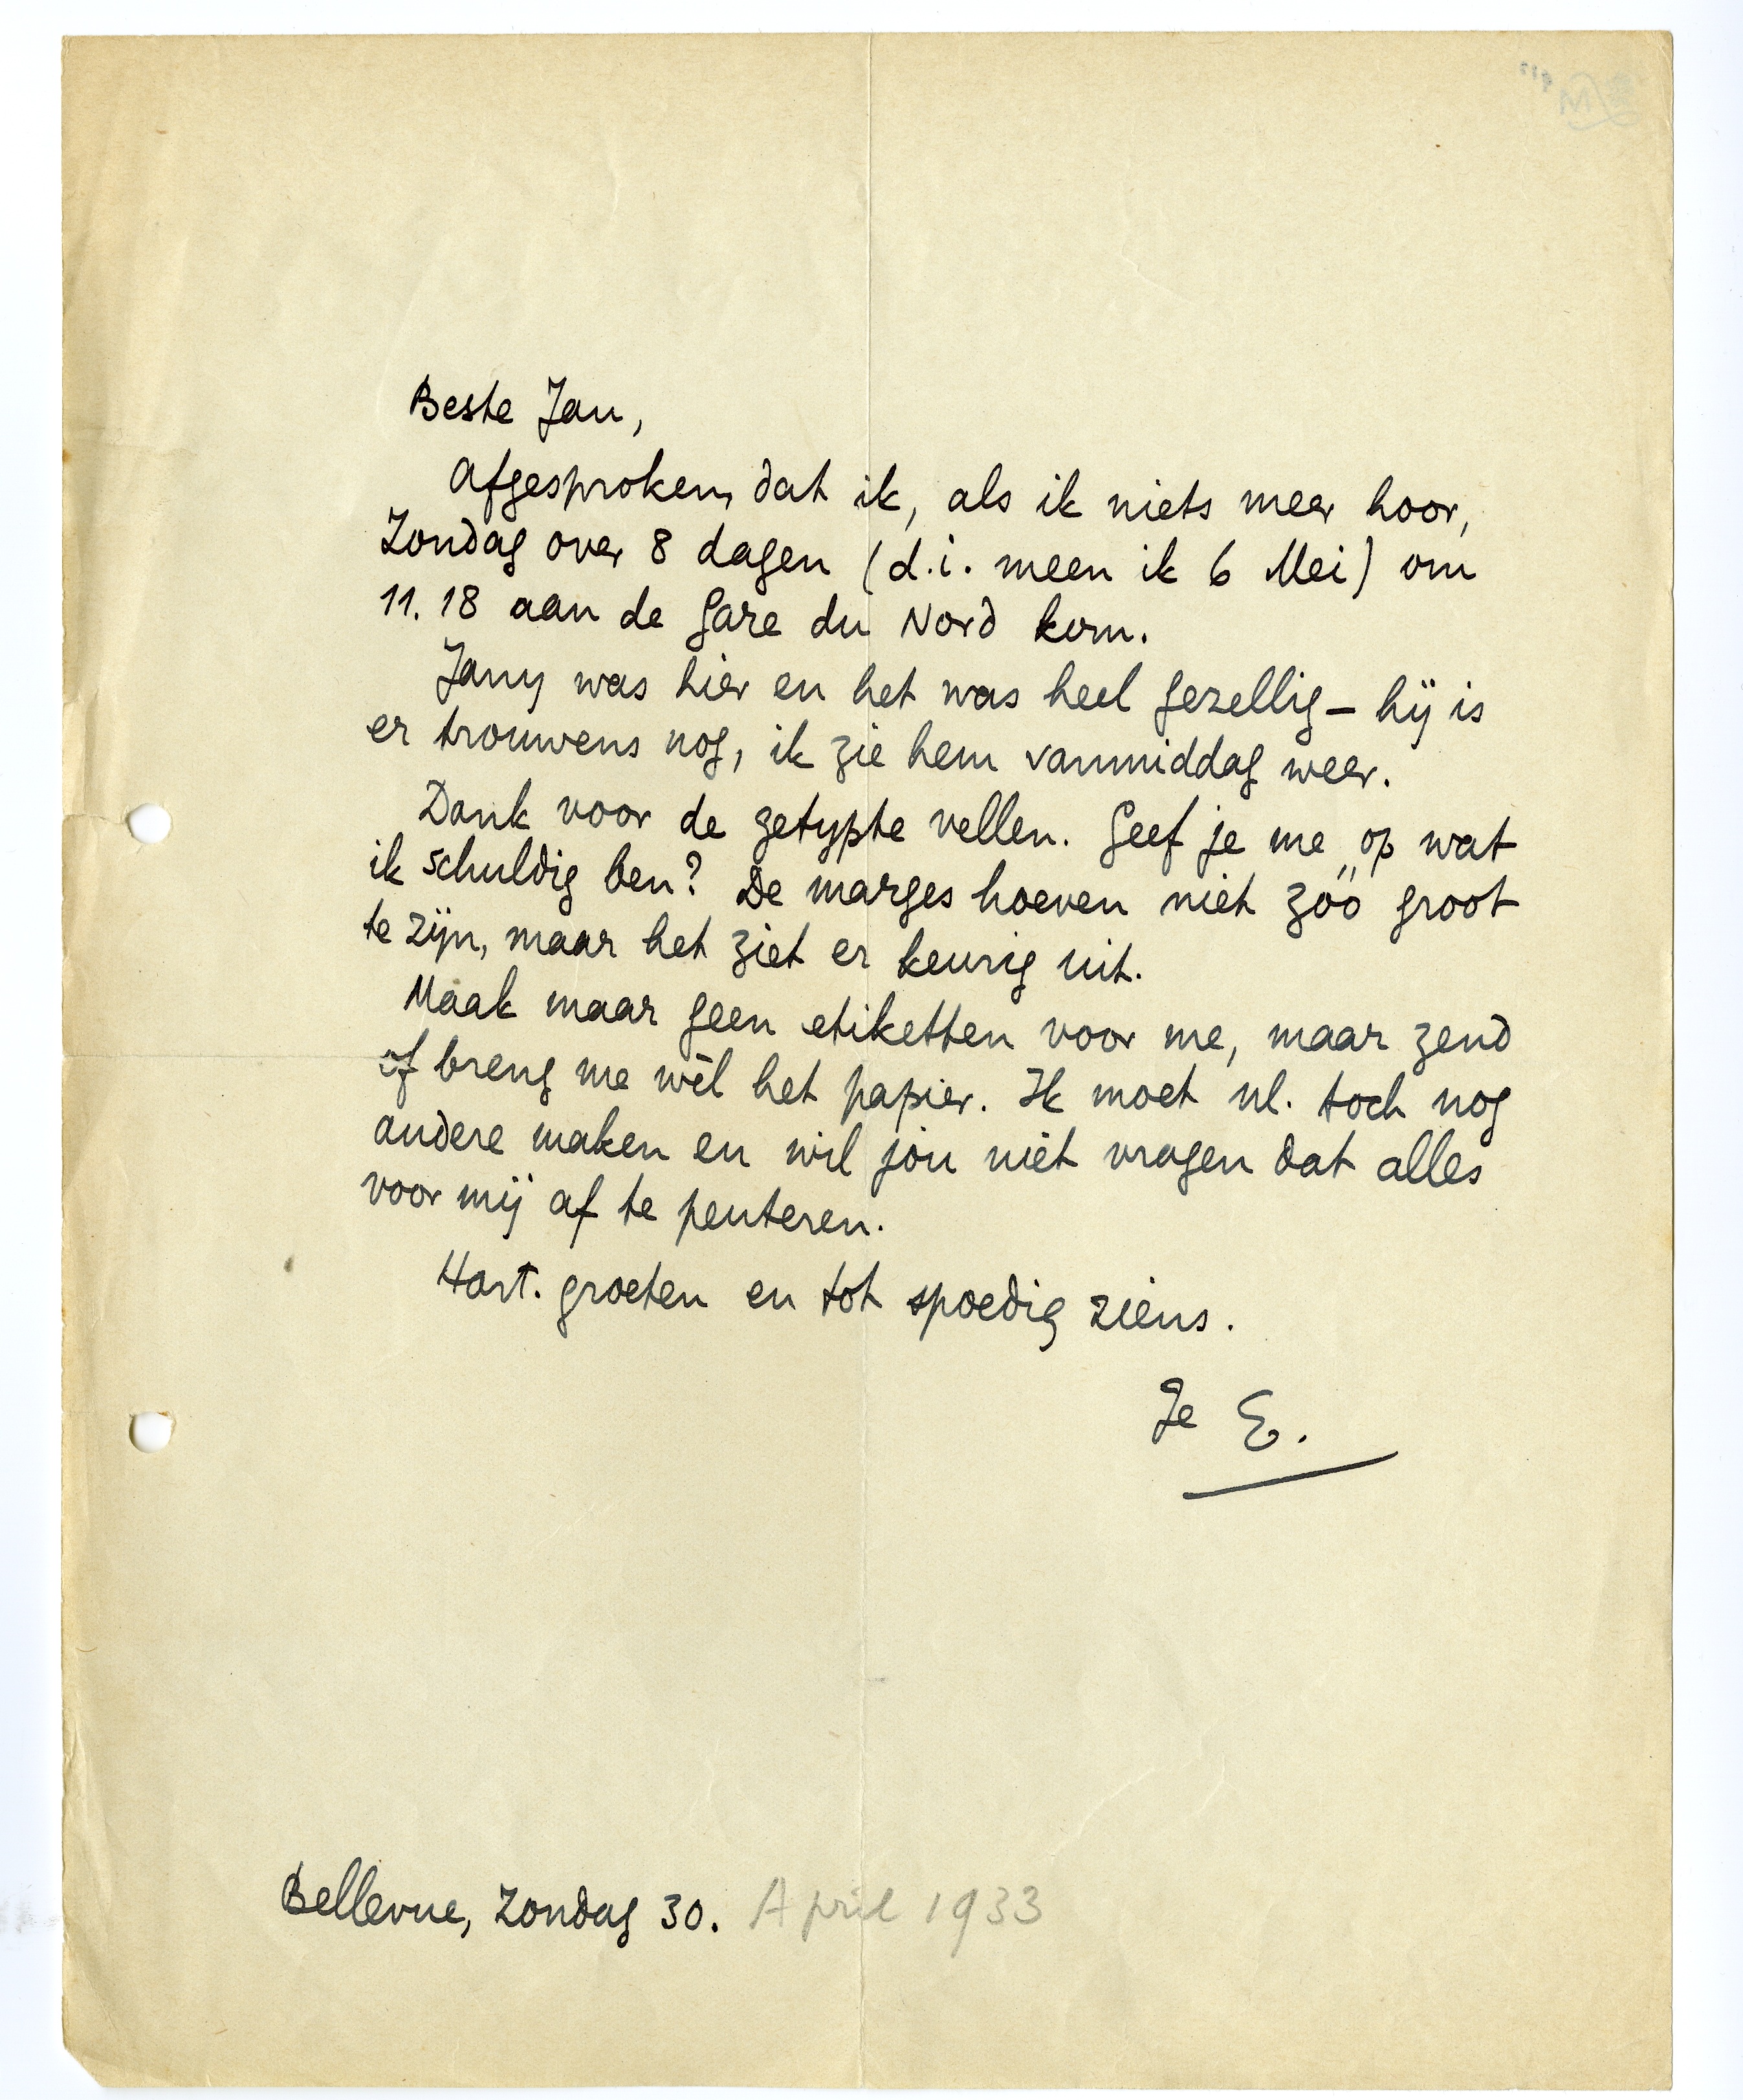 Beste Jan,
Afgesproken, dat ik, als ik niets meer hoor,
Zondag over 8 dagen (d.i. meen ik 6 Mei) om
11.18 aan de Gare du Nord kom.
Jany was hier en het was heel gezellig – hij is
er trouwens nog, ik zie hem vanmiddag weer.
Dank voor de getypte vellen. Geef je me op wat
ik schuldig ben? De marges hoeven niet zóó groot
te zijn, maar het ziet er keurig uit.
Maak maar geen etiketten voor me, maar zend
of breng me wèl het papier. Ik moet nl. toch nog
andere maken en wil jou niet vragen dat alles
voor mij af te peuteren.
Hart. groeten en tot spoedig ziens.
Je E.
Bellevue, Zondag 30. April 1933